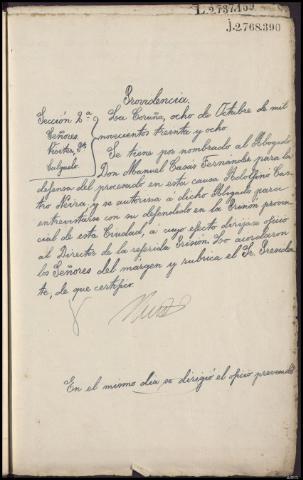 J.2.768.390
Providencia.
Sección 2ª
Señores
La Coruña, ocho de Octubre de mil
novecientos treinta y ocho
Se tiene por nombrado al Abogado
Don Manuel Casás Fernández para la
defensa del procesado en esta causa Rodolfino Cas
tro Neira, y se autoriza a dicho Abogado para
entrevistarse con su defendido en la Prisión provin
cial de esta Ciudad, a cuyo efecto dirijase oficio
al Director de la referida Prisión. Lo acordaron
los Señores del margen y rubrica el Sr. Presiden
te, de que certifico.
En el mismo día se dirigió el oficio prevenido